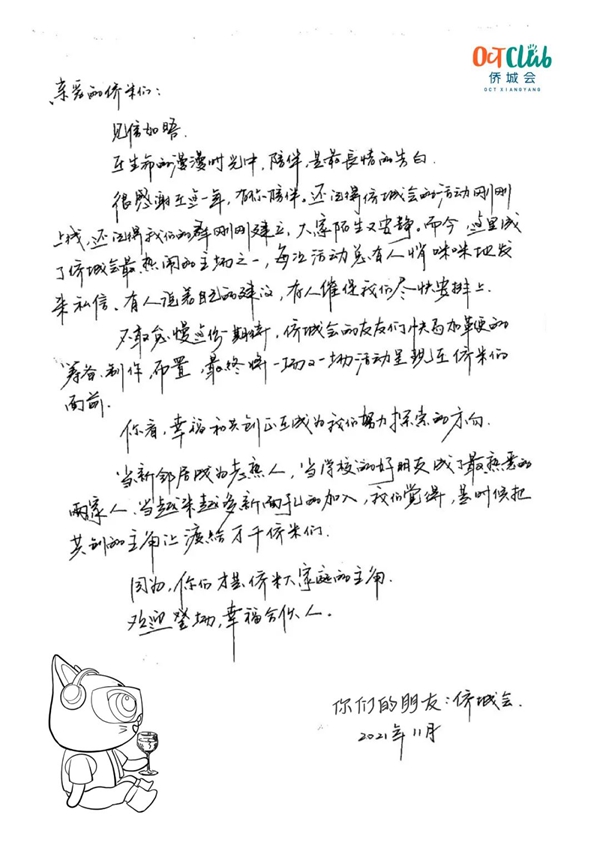 OCT Club
侨城会
OCT XIANGYANG
亲爱的侨米们：
见信如晤.
在生命的漫漫时光中，陪伴，是最长情的告白.
很感谢在这一年，有你陪伴。还记得侨城会的活动刚刚
上线，还记得我们的群刚刚建立，大家陌生又安静。而今，这里成
了侨城会最热闹的主场之一，每次活动总有人悄咪咪地发
来私信、有人说着自己的建议，有人催促我们尽快安排上.
不敢怠慢这份期待，侨城会的友友们快马加鞭的
筹备.制作.布置，最终将一场又一场活动呈现在侨米们
面前.
你看，幸福和共创正在成为我们努力探索的方向.
当新邻居成为老熟人，当学校的好朋友成了最熟悉的
两家人.当越来越多新面孔的加入，我们觉得，是时候把
共创的主角让渡给万千侨米们.
因为，你们才是侨米大家庭的主角.
欢迎登场，幸福合伙人.
你们的朋友：侨城会.
2021年11月